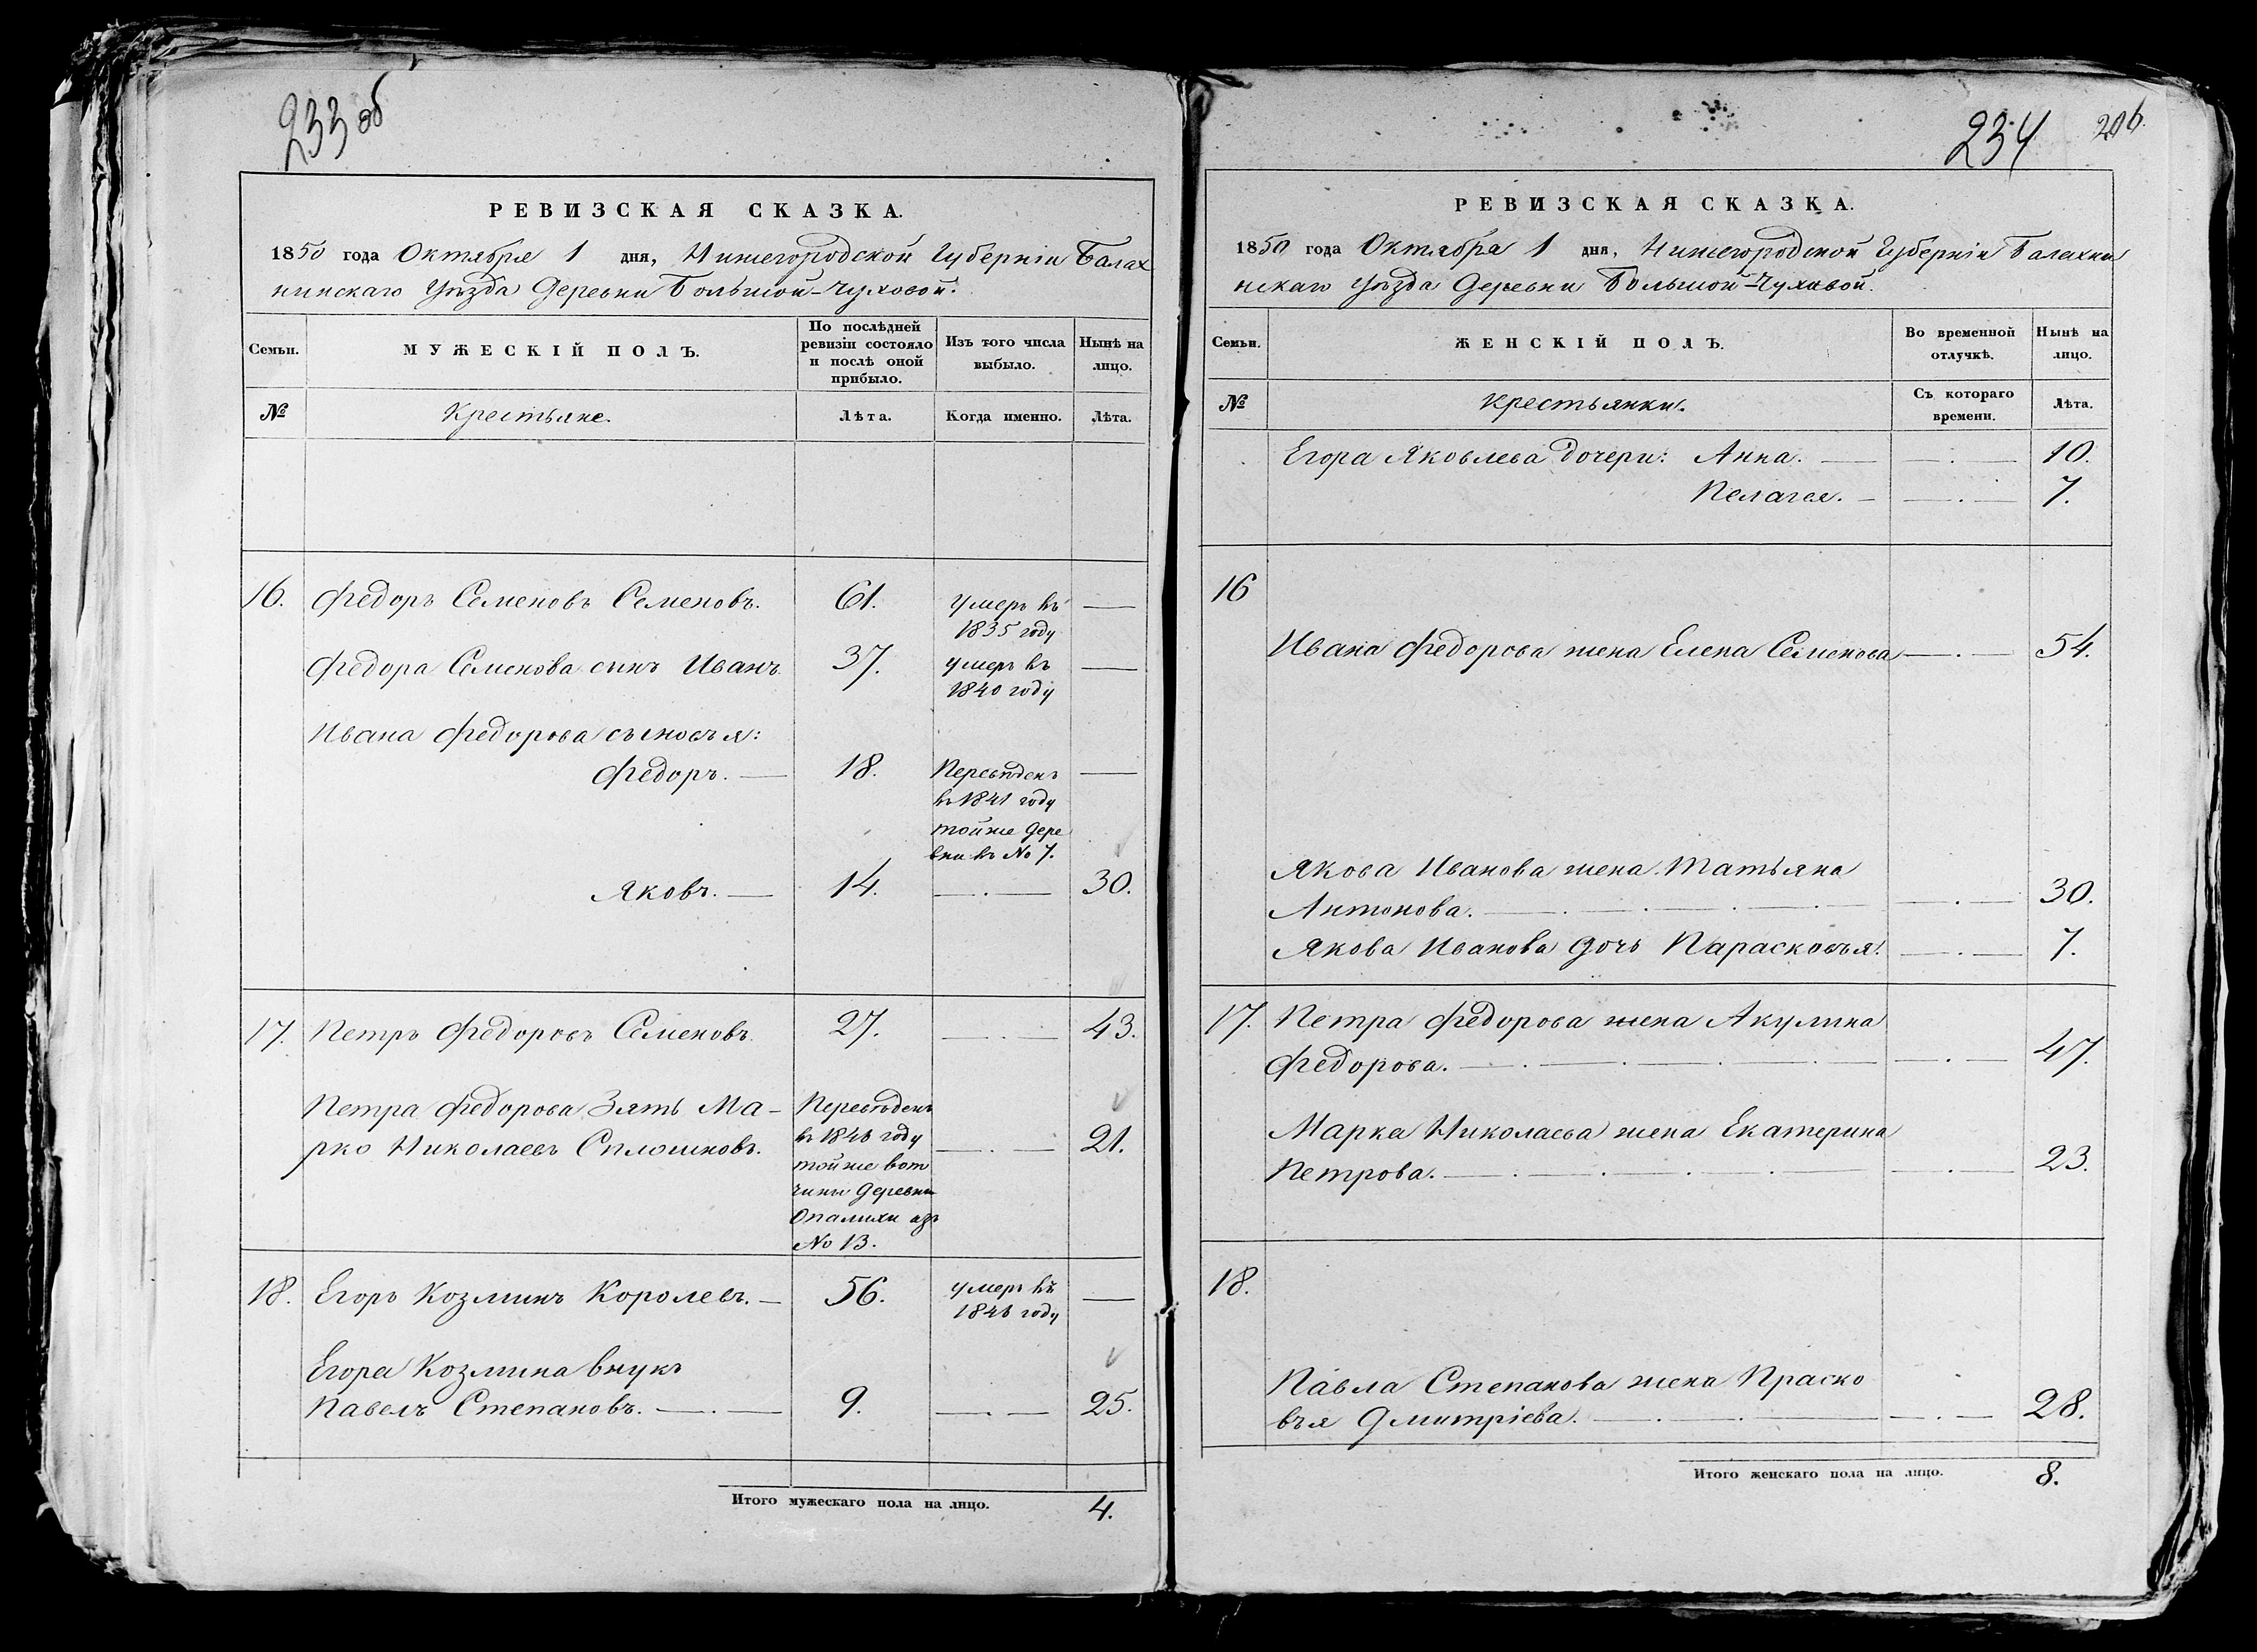 233 об
РЕВИЗСКАЯ СКАЗКА.
1850 года Октября 1 дня, Нижегородской Губерніи Балах
нинскаго Уѣзда Деревни Большой-Чуховой.
Семьи.
МУЖЕСКІЙ ПОЛЪ.
По послѣдней
ревизіи состояло
и послѣ оной
прибыло.
Изъ того числа
выбыло.
Нынѣ на
лицо.
№
Крестьяне.
Лѣта.
Когда именно.
Лѣта.
16. Федоръ Семеновъ Семеновъ. 61. умеръ въ
1835 году
Федора Семенова сынъ Иванъ. 37. умеръ въ
1840 году
Ивана Федорова сыновья:
Федоръ. 18. Переведенъ
въ 1841 году
той же дере
вни въ № 7.
Яковъ. 14. 30.
17. Петръ Федоровъ Семеновъ. 27. 43.
Петра Федорова Зять Ма-
рко Николаевъ Сплошновъ. 21.
Переведенъ
въ 1848 году
той же вот
чины деревни
Опалихи изъ
№ 13.
18. Егоръ Козминъ Королевъ. 56. умеръ въ
1848 году
Егора Козмина внукъ
Павелъ Степановъ. 9. 25.
Итого мужескаго пола на лицо. 4.
234 206.
РЕВИЗСКАЯ СКАЗКА.
1850 года Октября 1 дня, Нижегородской Губерніи Балахни
нскаго Уѣзда Деревни Большой-Чуховой.
Семьи.
ЖЕНСКІЙ ПОЛЪ.
Во временной
отлучкѣ.
Нынѣ на
лицо.
№
Крестьянки.
Съ котораго
времени.
Лѣта.
Егора Яковлева дочери: Анна. 10.
Пелагея. 7.
16
Ивана Федорова жена Елена Семенова 54.
Якова Иванова жена Татьяна
Антонова. 30.
Якова Иванова дочь Парасковья. 7.
17. Петра Федорова жена Акулина
Федорова. 47.
Марка Николаева жена Екатерина
Петрова. 23.
18.
Павла Степанова жена Праско
вья Дмитріева. 28.
Итого женскаго пола на лицо. 8.